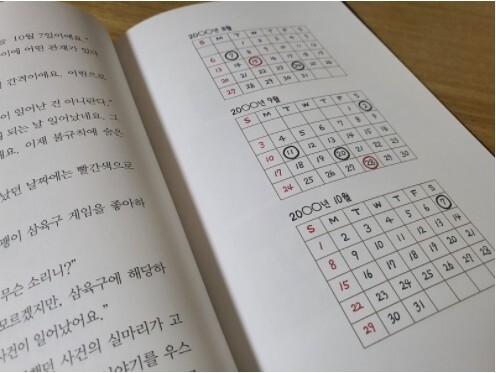 10월 7일이에요."
이에 어떤 관계가 있다
간격이에요.
이 일어난 건 아니란다."
되는 날 일어났네요. 그
네요. 이제 불규칙에 숨은
났던 날짜에는 빨간색으로
팽이 삼육구 게임을 좋아하
무슨 소리니?"
모르겠지만, 삼육구에 해당하
사건이 일어났어요."
했던 사건의 실마리가 고
이야기를 우스
20○○년 8월
S M T W T F S
1 2 3 4 5
6 7 8 9 10 11 12
13 14 15 16 17 18 19
20 21 22 23 24 25 26
27 28 29 30 31
20○○년 9월
S M T W T F S
1 2
3 4 5 6 7 8 9
10 11 12 13 14 15 16
17 18 19 20 21 22 23
24 25 26 27 28 29 30
20○○년 10월
S M T W T F S
1 2 3 4 5 6 7
8 9 10 11 12 13 14
15 16 17 18 19 20 21
22 23 24 25 26 27 28
29 30 31